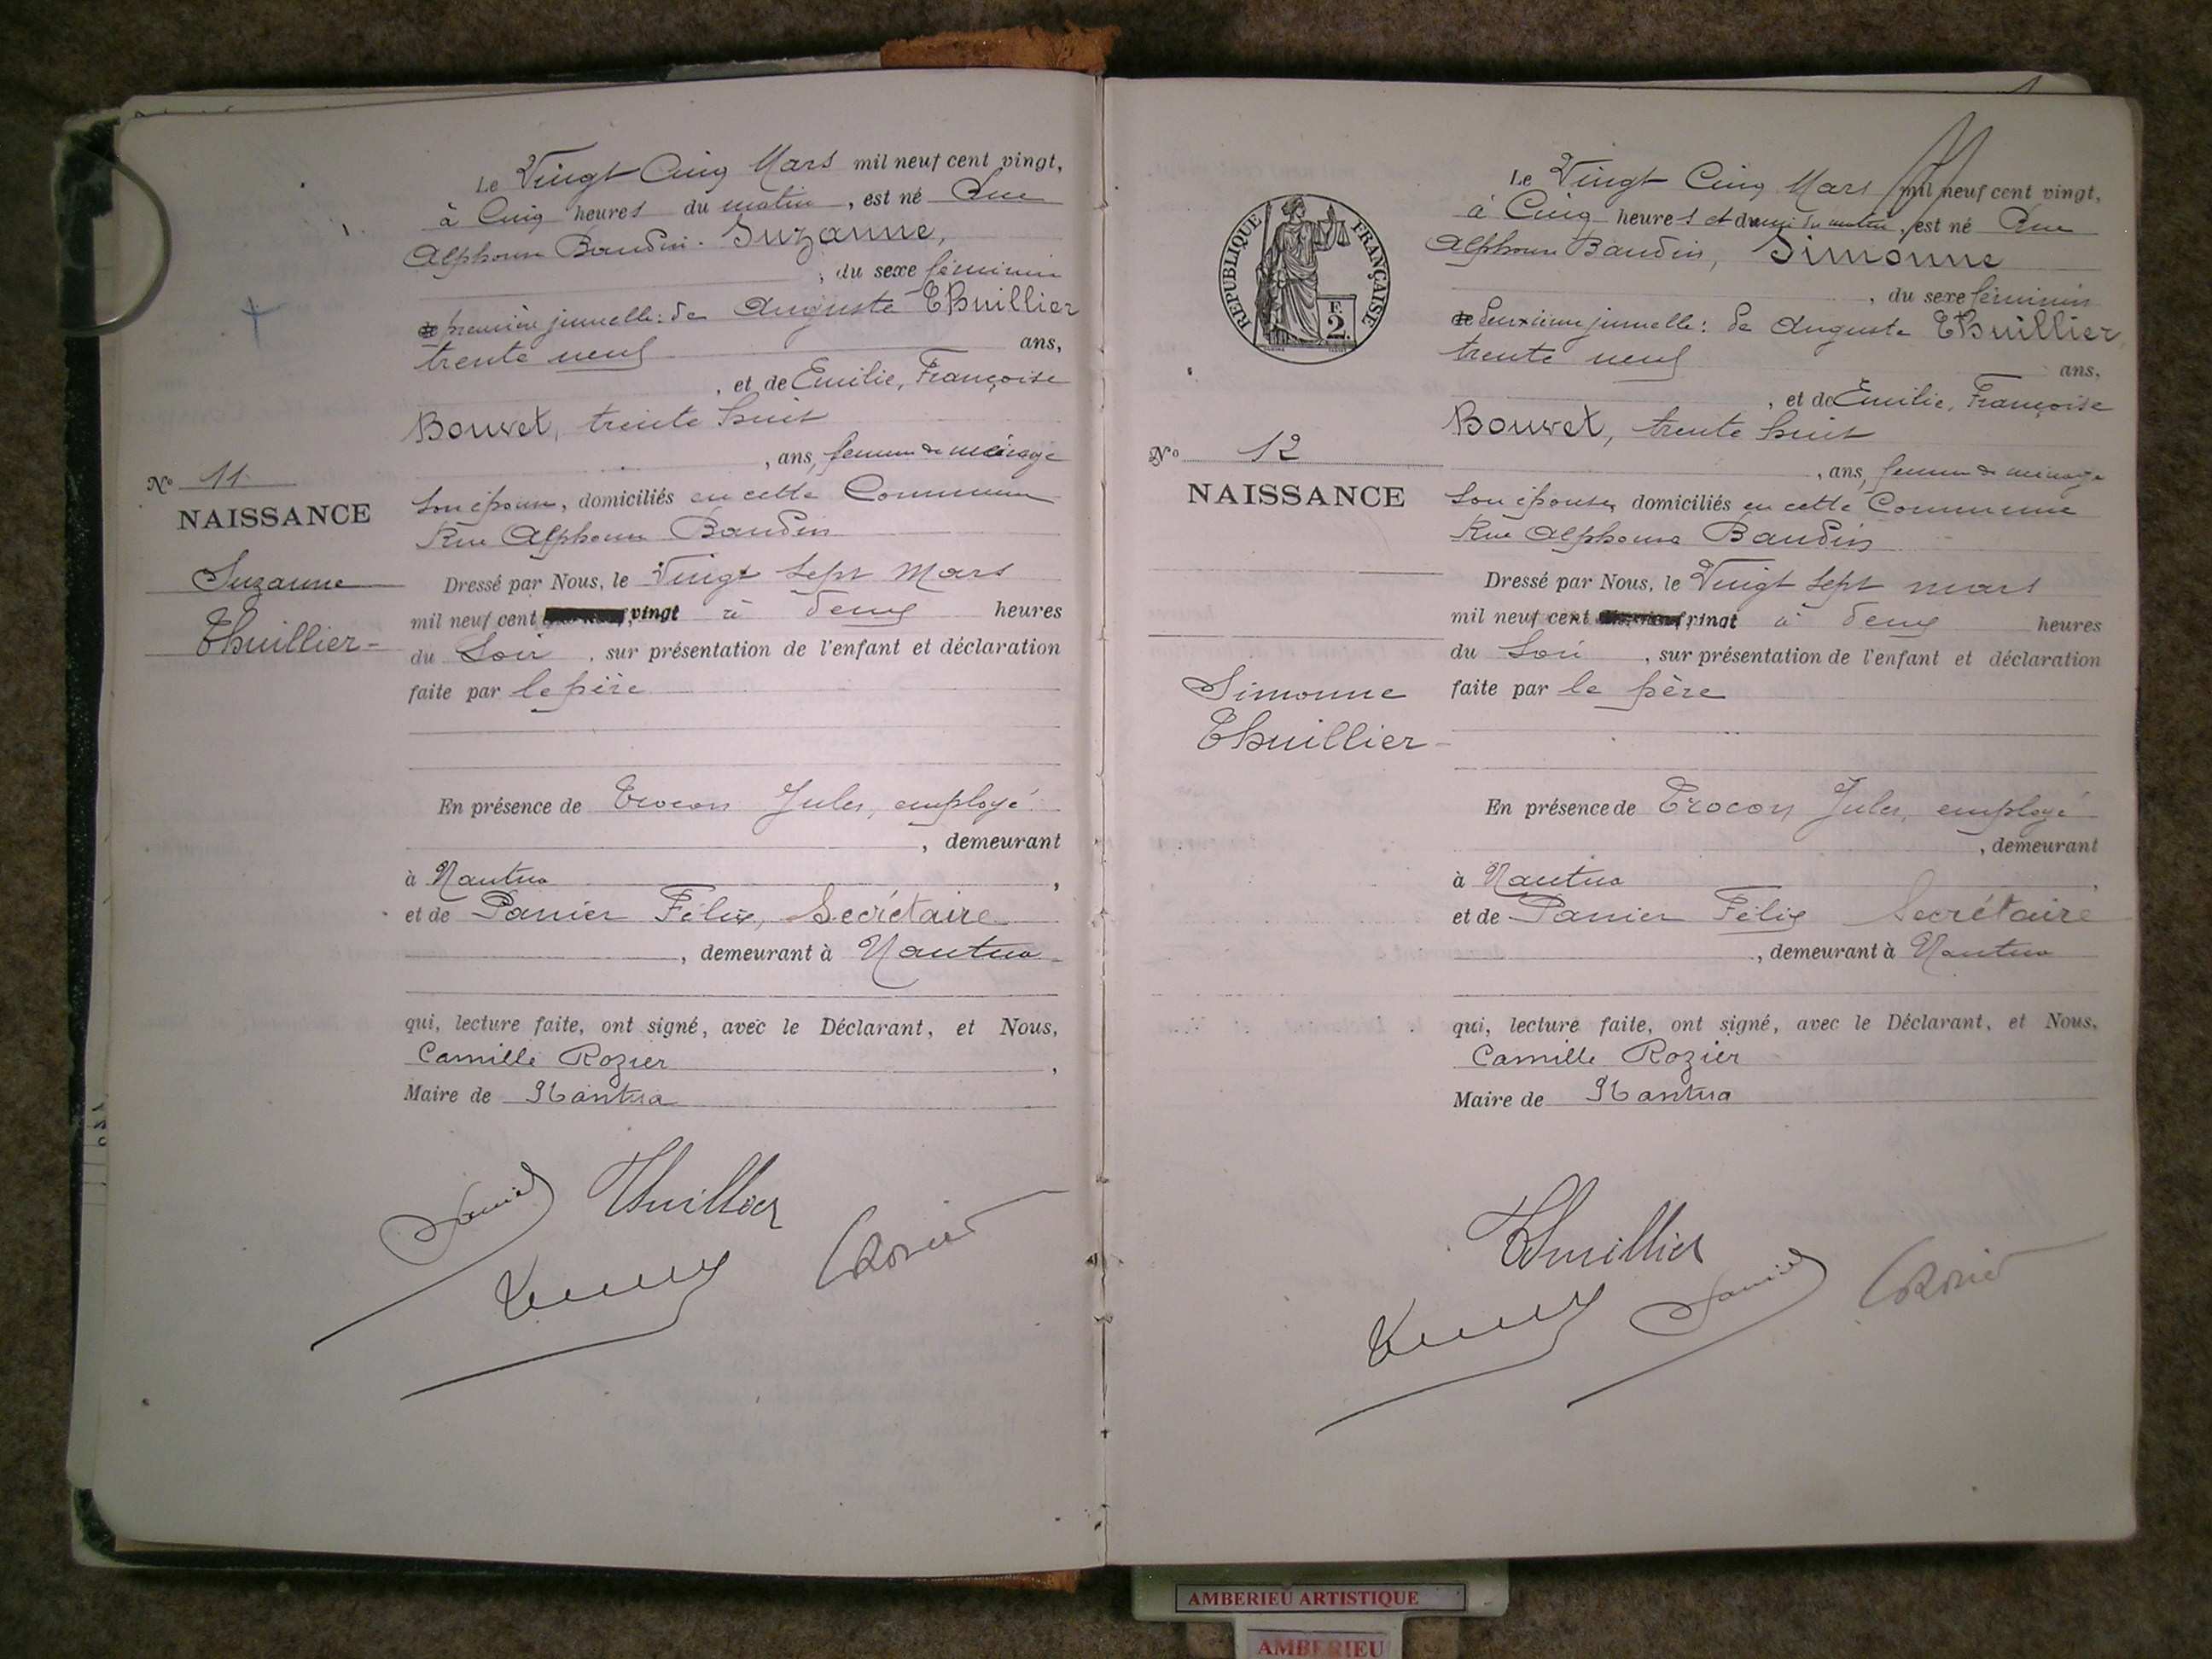 Le Vingt Cinq Mars mil neuf cent vingt,
à Cinq heures du matin, est né Rue
Alphonse Baudin. Suzanne,
, du sexe féminin
première jumelle: de Auguste Thuillier
trente neuf ans,
, et de Emilie, Françoise
Bouvet, trente huit
, ans, femme de ménage
Son épouse, domiciliés en cette Commune
Rue Alphonse Baudin
No 11
NAISSANCE
Suzanne
Thuillier-
Dressé par Nous, le Vingt Sept Mars
mil neuf cent vingt à deux heures
du Soir, sur présentation de l'enfant et déclaration
faite par le père
En présence de Trocon Jules, employé
, demeurant
à Nantua,
et de Panier Félix, Secrétaire
, demeurant à Nantua
qui, lecture faite, ont signé, avec le Déclarant, et Nous,
Camille Rozier,
Maire de Nantua
Panier Thuillier
Rozier
RÉPUBLIQUE FRANÇAISE
F.
2.
Le Vingt Cinq Mars mil neuf cent vingt,
à Cinq heures et demi du matin, est né Rue
Alphonse Baudin, Simonne
, du sexe féminin
deuxième jumelle: de Auguste Thuillier
trente neuf
ans,
, et de Emilie, Françoise
Bouvet, trente huit
, ans, femme de ménage
Son épouse, domiciliés en cette Commune
Rue Alphonse Baudin
No 12
NAISSANCE
Simonne
Thuillier-
Dressé par Nous, le Vingt Sept mars
mil neuf cent vingt à deux heures
du Soir, sur présentation de l'enfant et déclaration
faite par le père
En présence de Trocon Jules, employé
, demeurant
à Nantua,
et de Panier Félix Secrétaire
, demeurant à Nantua
qui, lecture faite, ont signé, avec le Déclarant, et Nous,
Camille Rozier
Maire de Nantua
Thuillier
Panier Rozier
AMBERIEU ARTISTIQUE
AMBERIEU